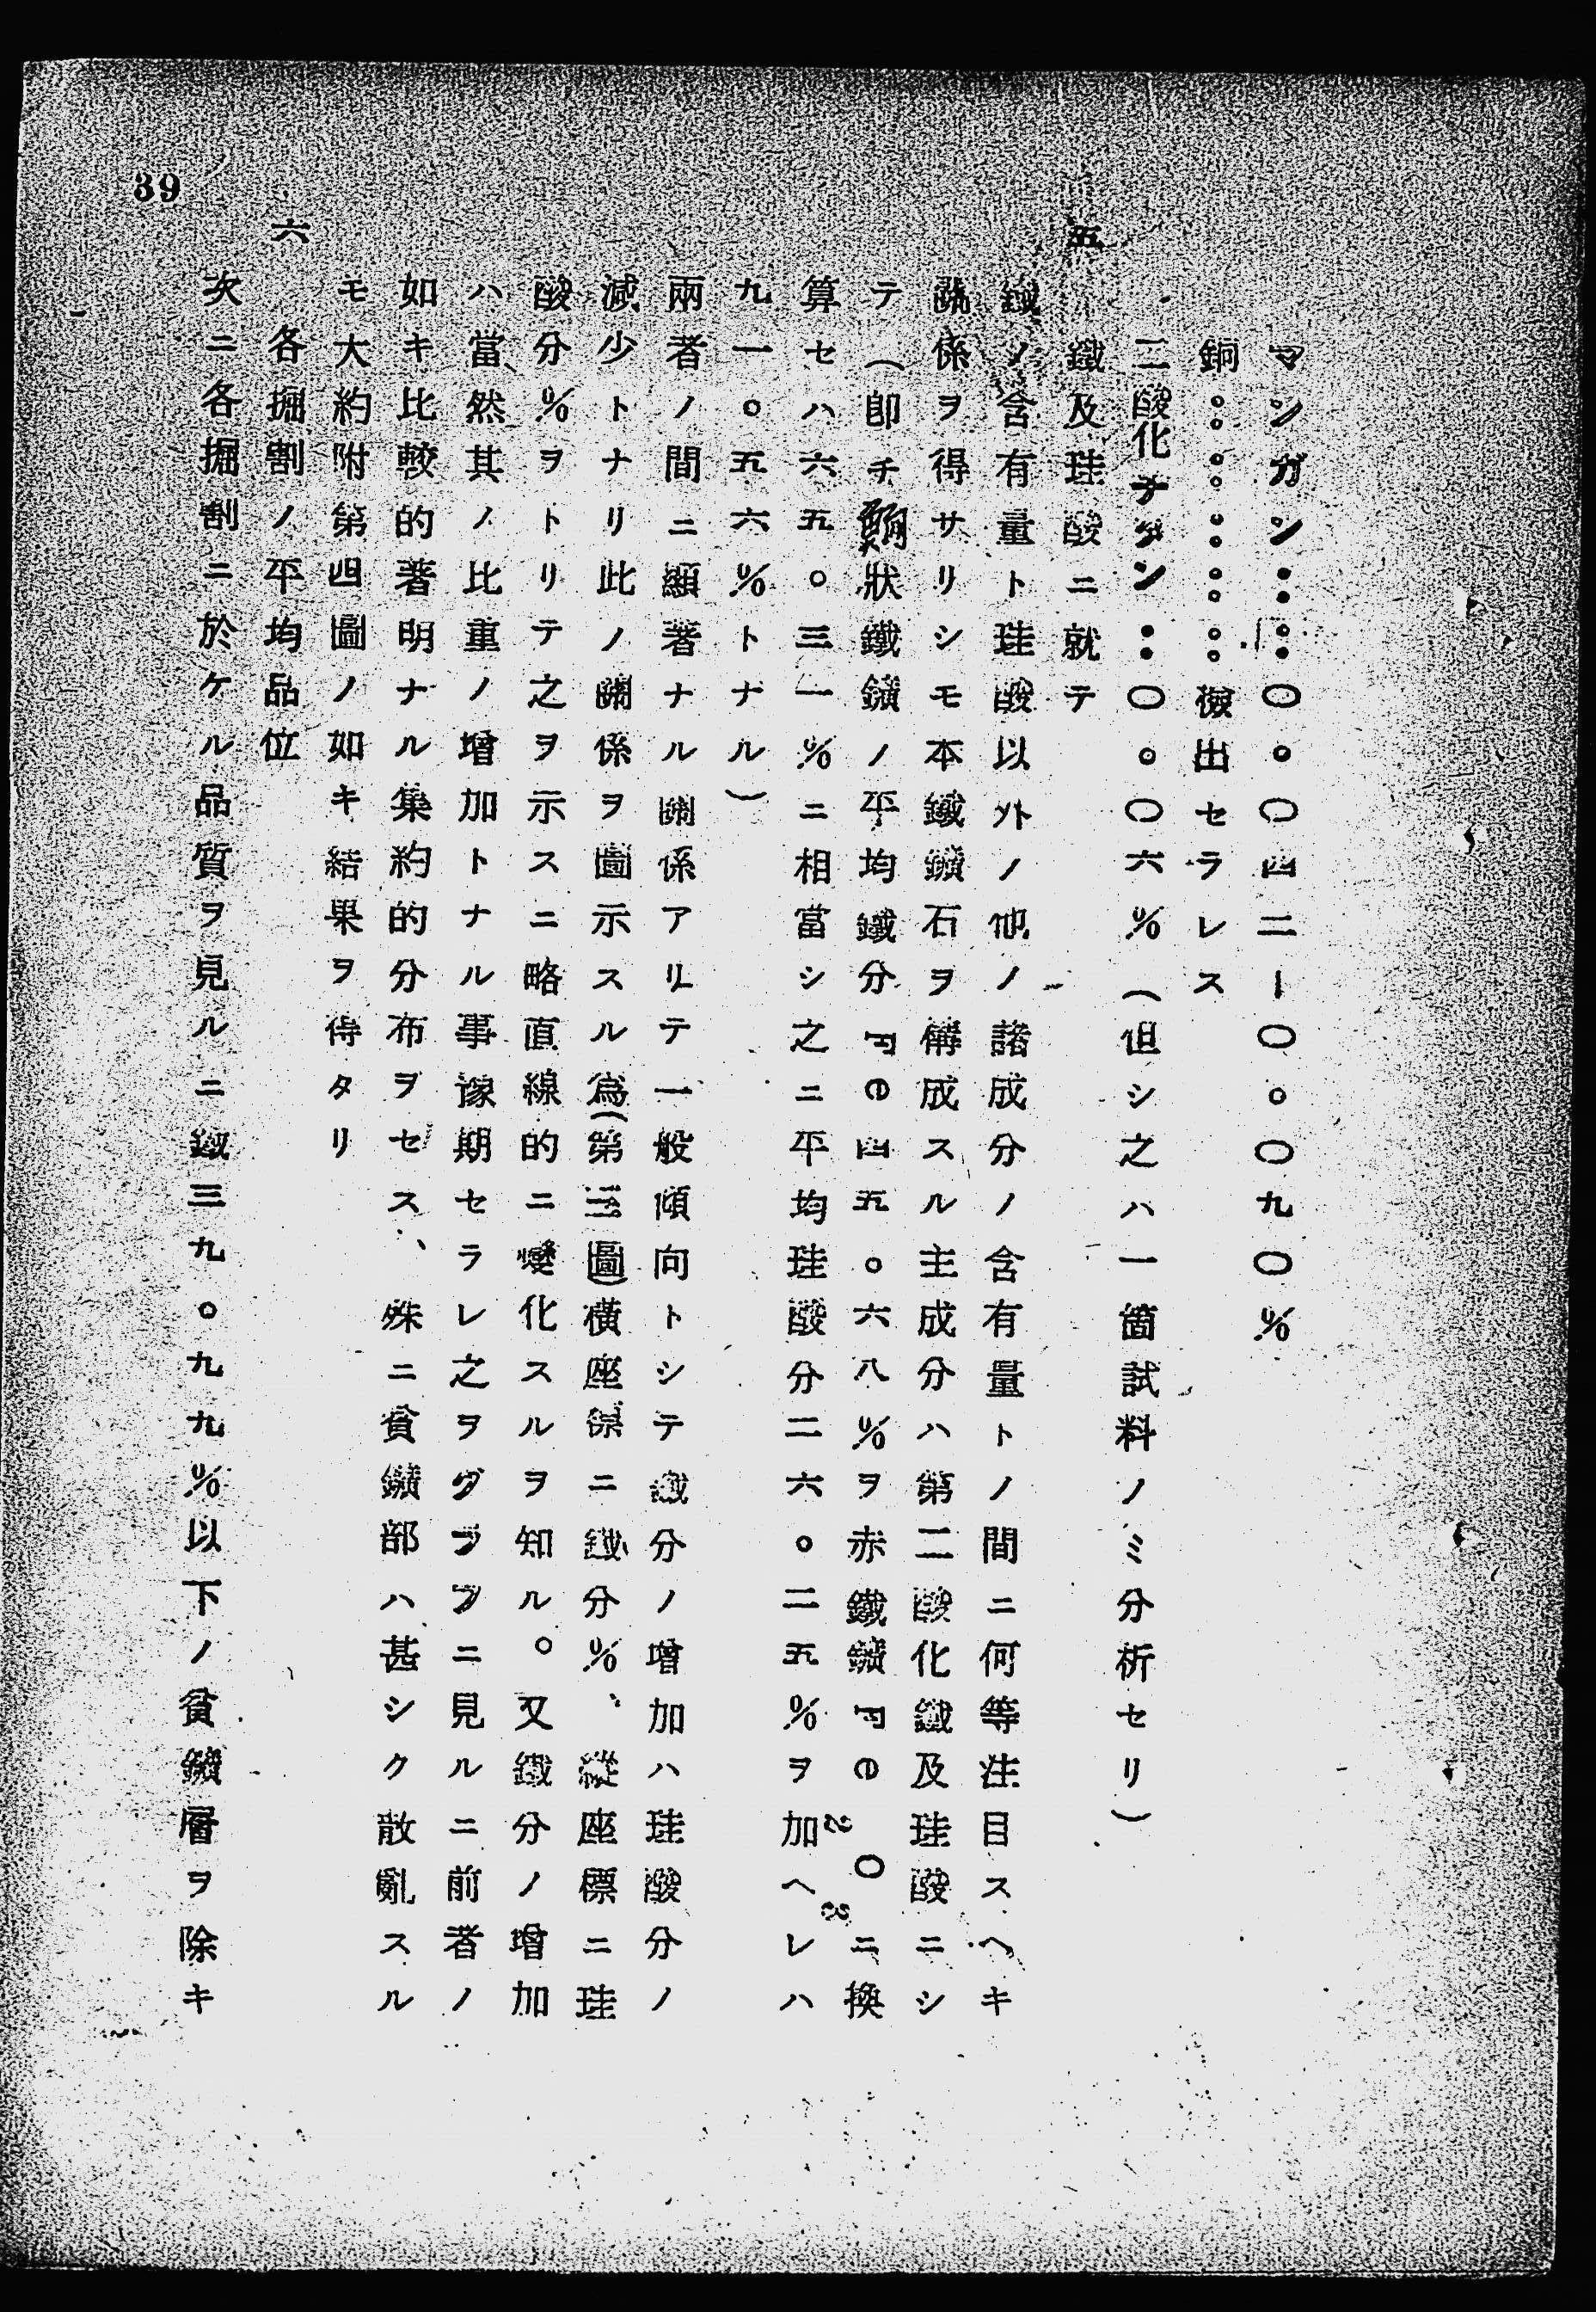 マンガン：：〇。〇四二ー〇。〇九〇％
銅：：：：：檢出セラレス
二酸化チタン：〇。〇六％（但シ之ハ一箇試料ノミ分析セリ）
五　鐵及珪酸ニ就テ
鐵ノ含有量ト珪酸以外ノ他ノ諸成分ノ含有量トノ間ニ何等注目スヘキ
關係ヲ得サリシモ本鐵鑛石ヲ構成スル主成分ハ第二酸化鐵及珪酸ニシ
テ（卽チ狀鐵鑛ノ平均鐵分Fe四五。六八％ヲ赤鐵鑛Fe2O3ニ換
算セハ六五。三一％ニ相當シ之ニ平均珪酸分二六。二五％ヲ加ヘレハ
九一。五六％トナル）
兩者ノ間ニ顯著ナル關係アリテ一般傾向トシテ鐵分ノ增加ハ珪酸分ノ
減少トナリ此ノ關係ヲ圖示スル爲（第三圖）橫座標ニ鐵分％、縱座標ニ珪
酸分％ヲトリテ之ヲ示スニ略直線的ニ變化スルヲ知ル。又鐵分ノ增加
ハ當然其ノ比重ノ增加トナル事豫期セラレ之ヲグラフニ見ルニ前者ノ
如キ比較的著明ナル集約的分布ヲセス、殊ニ貧鑛部ハ甚シク散亂スル
モ大約附第四圖ノ如キ結果ヲ得タリ
六　各掘割ノ平均品位
次ニ各掘割ニ於ケル品質ヲ見ルニ鐵三九。九九％以下ノ貧鑛層ヲ除キ
39